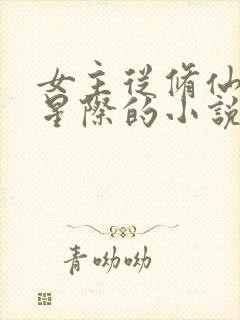 女主從脩仙
星際的小說
青呦呦